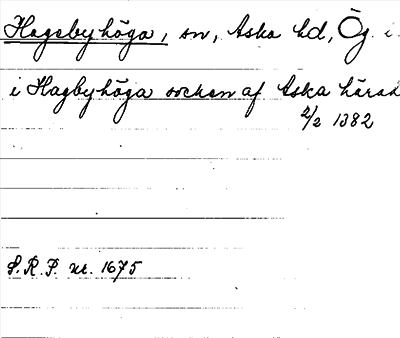 Hagebyhöga, sn, Aska hd, Ög. i.
i Hagbyhöga sockam af Aska härad
2/2 1382
S.R.P. nr. 1675